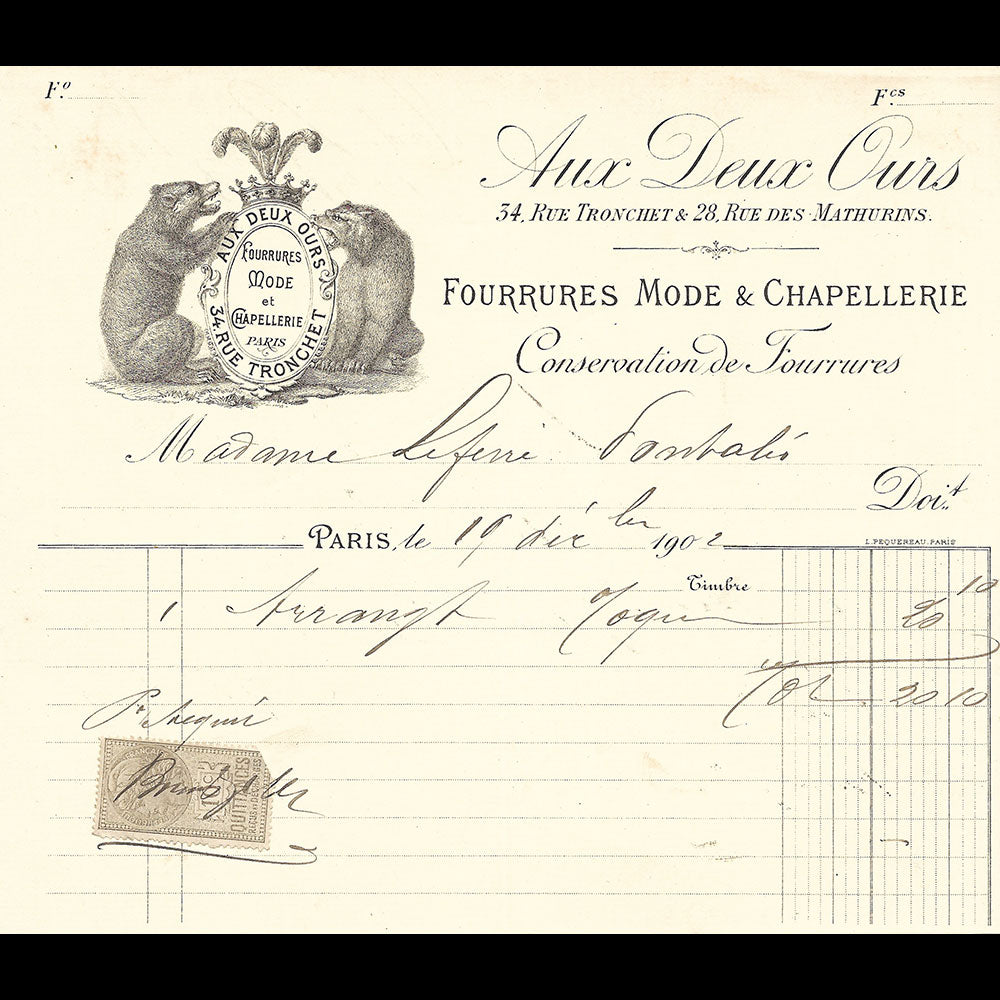 Fº
Fcs
AUX DEUX OURS
FOURRURES
MODE
et
CHAPELLERIE
PARIS
34, RUE TRONCHET
Aux Deux Ours
34, RUE TRONCHET & 28, RUE DES MATHURINS.
FOURRURES MODE & CHAPELLERIE
Conservation de Fourrures
Madame
Doit
PARIS, le 19 déc bre 1902
L. PEQUEREAU. PARIS
Timbre 10
1 Arrangt Toque 20
Tot 20 10
Pr Acquit
QUITTANCES